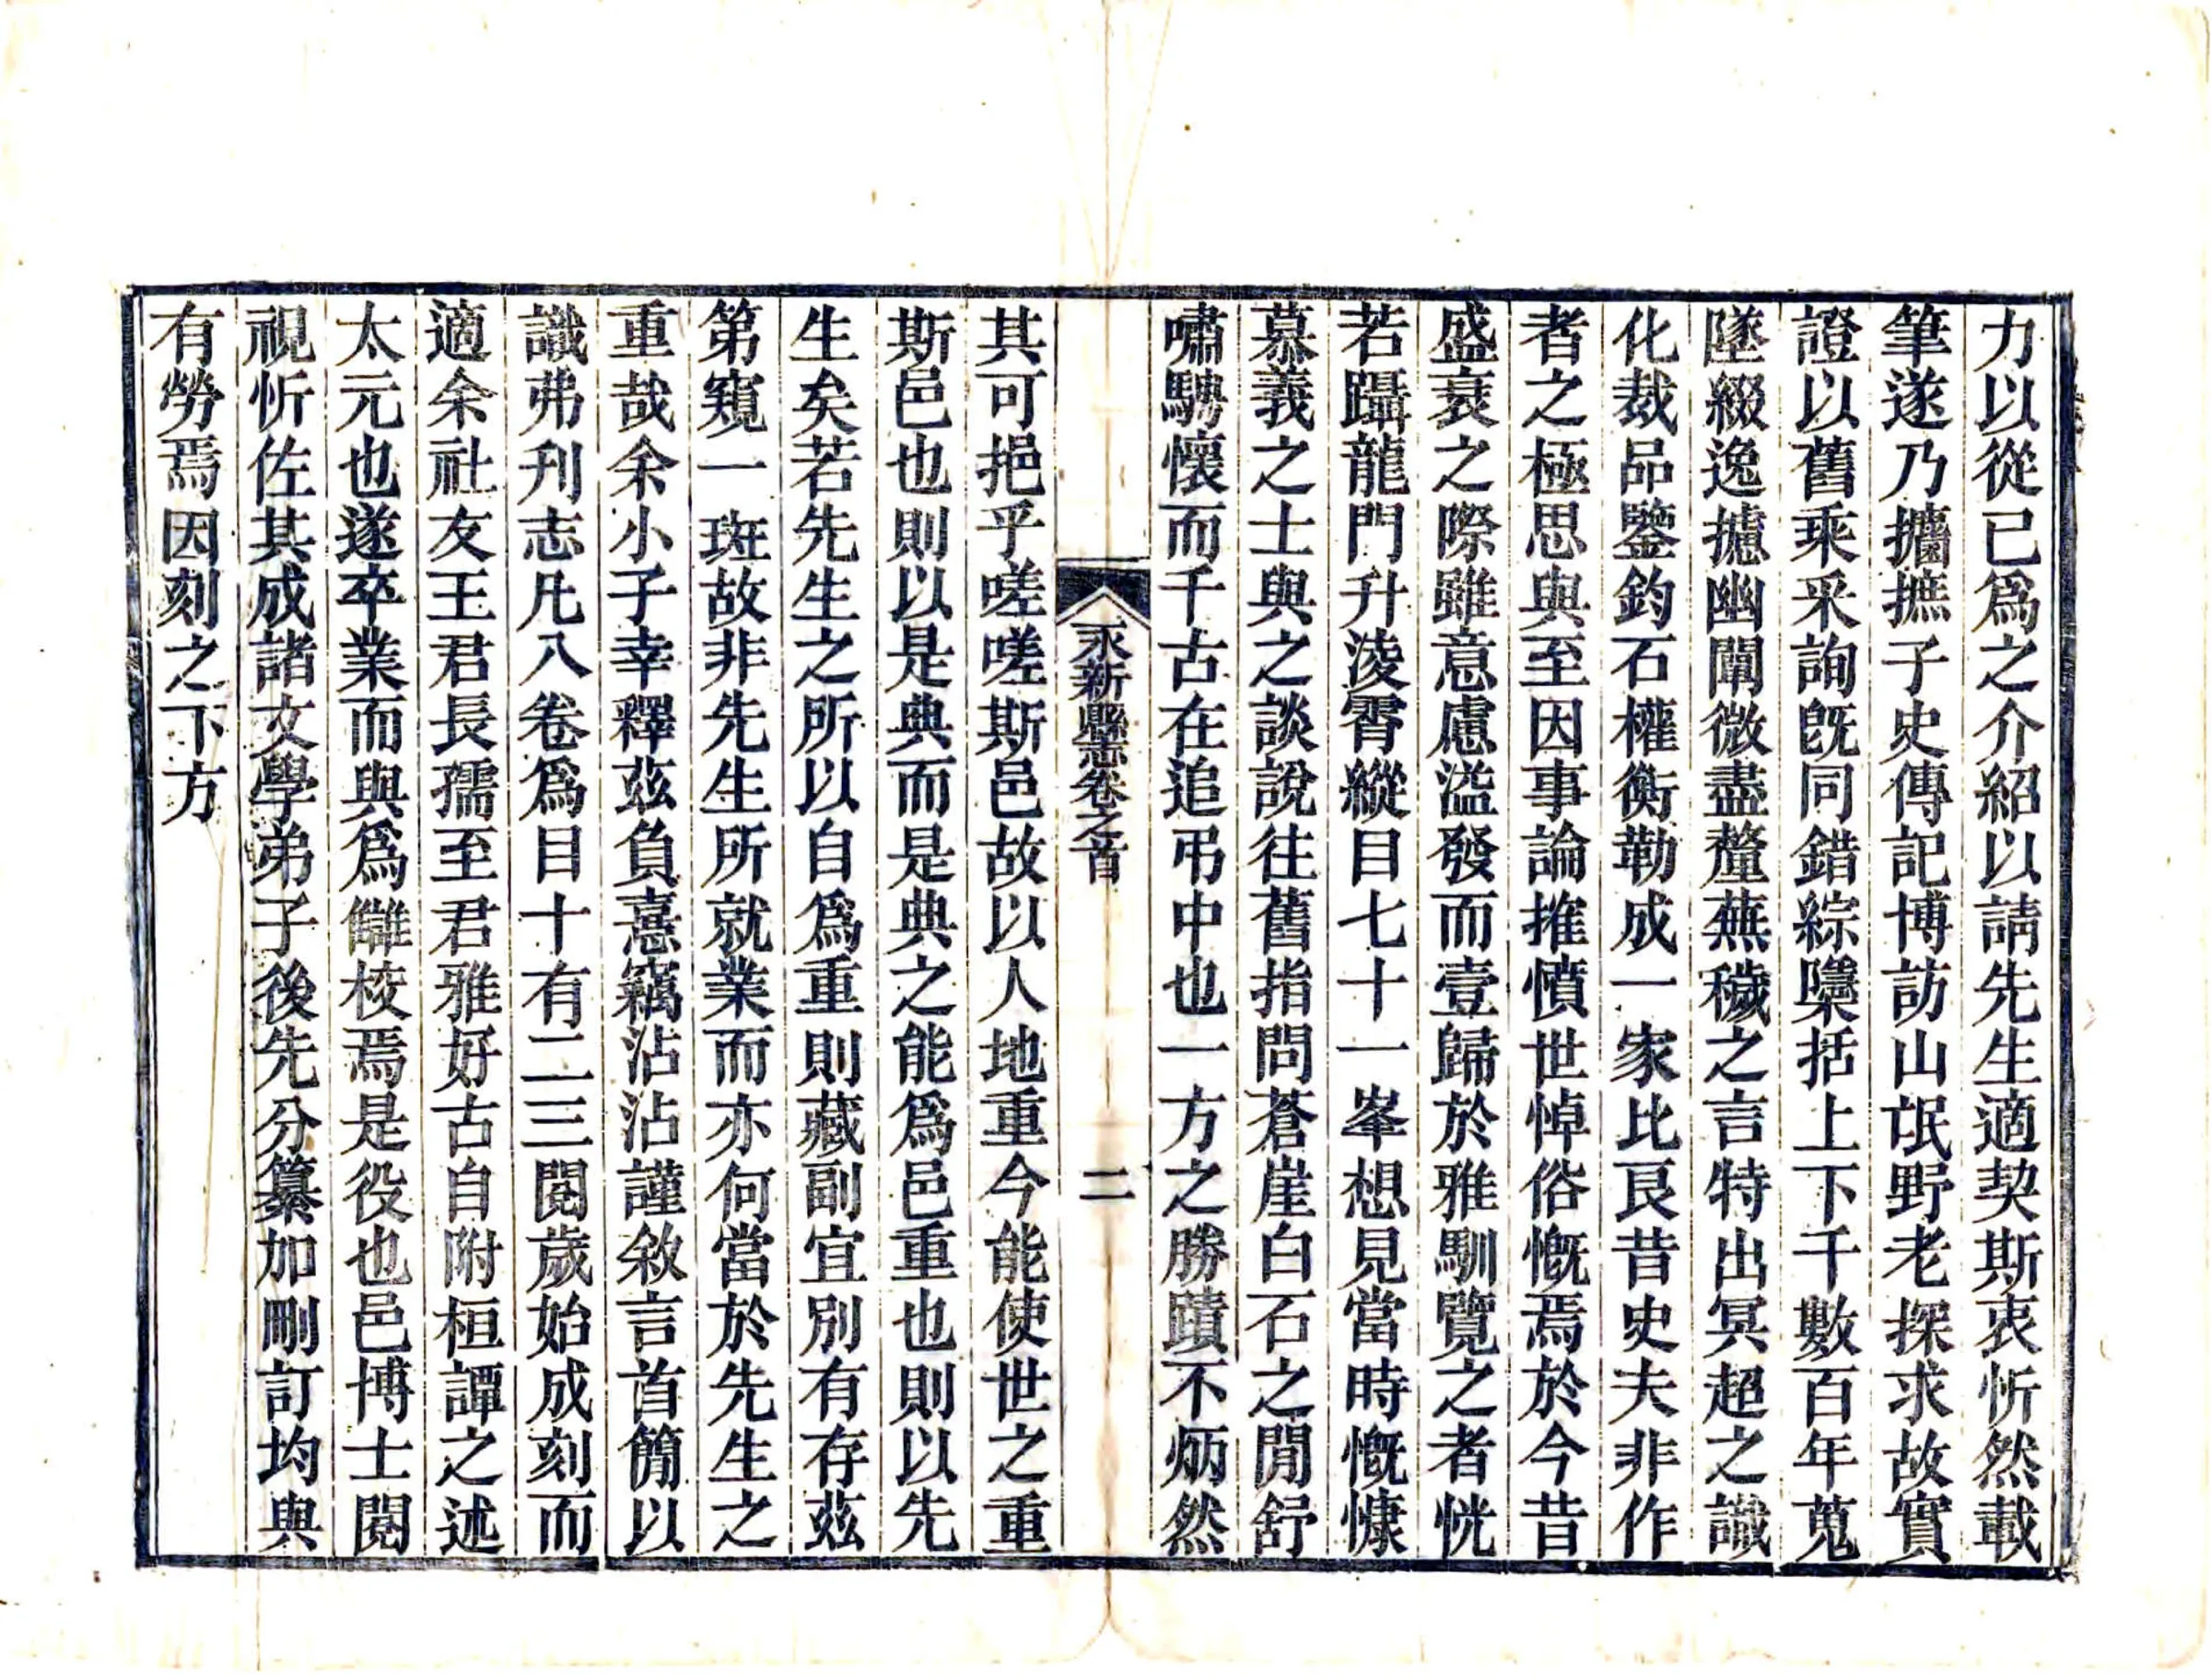 力以從已爲之介紹以請先生適契斯衷忻然載
筆遂乃攟摭子史傳記博訪山氓野老探求故實
證以舊乘采詢旣同錯綜櫽括上下千數百年蒐
墜綴逸攄幽闡微盡釐蕪穢之言特出冥超之識
化裁品鑒鈞石權衡勒成一家比艮昔史夫非作
者之極思與至因事論推憤世悼俗慨焉於今昔
盛衰之際雖意慮溢發而壹歸於雅馴覽之者恍
若躡龍門升淩霄縱目七十一峯想見當時慨慷
慕義之士與之談說往舊指問蒼崖白石之閒舒
嘯騁懷而千古在追弔中也一方之勝蹟不炳然
永新縣志卷之首
二
其可挹乎嗟嗟斯邑故以人地重今能使世之重
斯邑也則以是典而是典之能爲邑重也則以先
生矣若先生之所以自爲重則藏副宜別有存茲
第窺一斑故非先生所就業而亦何當於先生之
重哉余小子幸釋茲負憙竊沾沾謹敘言首簡以
識弗刋志凡八卷爲目十有二三閱歲始成刻而
適余社友王君長孺至君雅好古自附桓譚之述
太元也遂卒業而與爲讎校焉是役也邑博士閱
視忻佐其成諸文學弟子後先分纂加刪訂均與
有勞焉因刻之下方